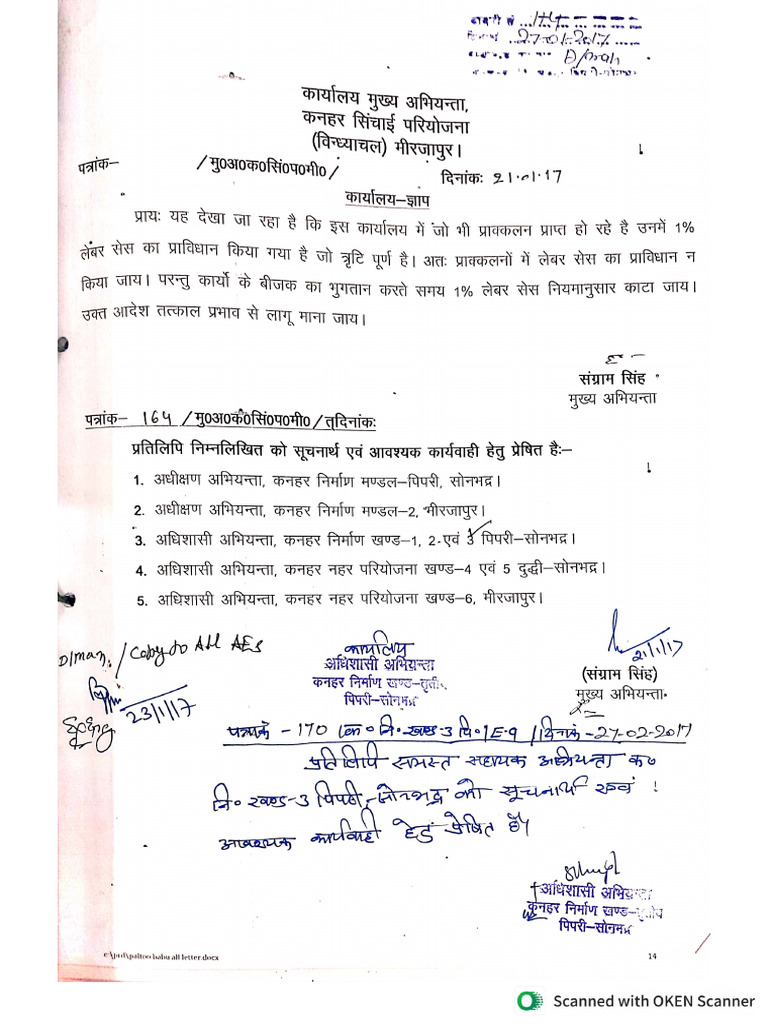 174
दिनांक 27-01-2017
D/man
कार्यालय मुख्य अभियन्ता,
कनहर सिंचाई परियोजना
(विन्ध्याचल) मीरजापुर।
पत्रांक- /मु0अ0क0सिं0प0मी0/ दिनांकः 21.01.17
कार्यालय-ज्ञाप
प्रायः यह देखा जा रहा है कि इस कार्यालय में जो भी प्राक्कलन प्राप्त हो रहे है उनमें 1%
लेबर सेस का प्राविधान किया गया है जो त्रृटि पूर्ण है। अतः प्राक्कलनों में लेबर सेस का प्राविधान न
किया जाय। परन्तु कार्यो के बीजक का भुगतान करते समय 1% लेबर सेस नियमानुसार काटा जाय।
उक्त आदेश तत्काल प्रभाव से लागू माना जाय।
संग्राम सिंह
मुख्य अभियन्ता
पत्रांक- 164 /मु0अ0कं0सिं0प0मी0/तद्दिनांकः
प्रतिलिपि निम्नलिखित को सूचनार्थ एवं आवश्यक कार्यवाही हेतु प्रेषित हैः-
1. अधीक्षण अभियन्ता, कनहर निर्माण मण्डल-पिपरी, सोनभद्र।
2. अधीक्षण अभियन्ता, कनहर निर्माण मण्डल-2, मीरजापुर।
3. अधिशासी अभियन्ता, कनहर निर्माण खण्ड-1, 2-एवं 3 पिपरी-सोनभद्र।
4. अधिशासी अभियन्ता, कनहर नहर परियोजना खण्ड-4 एवं 5 दुद्धी-सोनभद्र।
5. अधिशासी अभियन्ता, कनहर नहर परियोजना खण्ड-6, मीरजापुर।
21/1/17
(संग्राम सिंह)
मुख्य अभियन्ता
D/man. / Copy to All AEs
23/1/17
कार्यालय
अधिशासी अभियन्ता
कनहर निर्माण खण्ड-तृतीय
पिपरी-सोनभद्र
पत्रांक -170 /क०नि०खण्ड-3 पि०/E-9 /दिनांक -27-02-2017
प्रतिलिपि समस्त सहायक अभियन्ता क०
नि० खण्ड-3 पिपरी, सोनभद्र को सूचनार्थ एवं
आवश्यक कार्यवाही हेतु प्रेषित है।
अधिशासी अभियन्ता
कनहर निर्माण खण्ड-तृतीय
पिपरी-सोनभद्र
e:\prd\paltoo babu all letter.docx 14
Scanned with OKEN Scanner